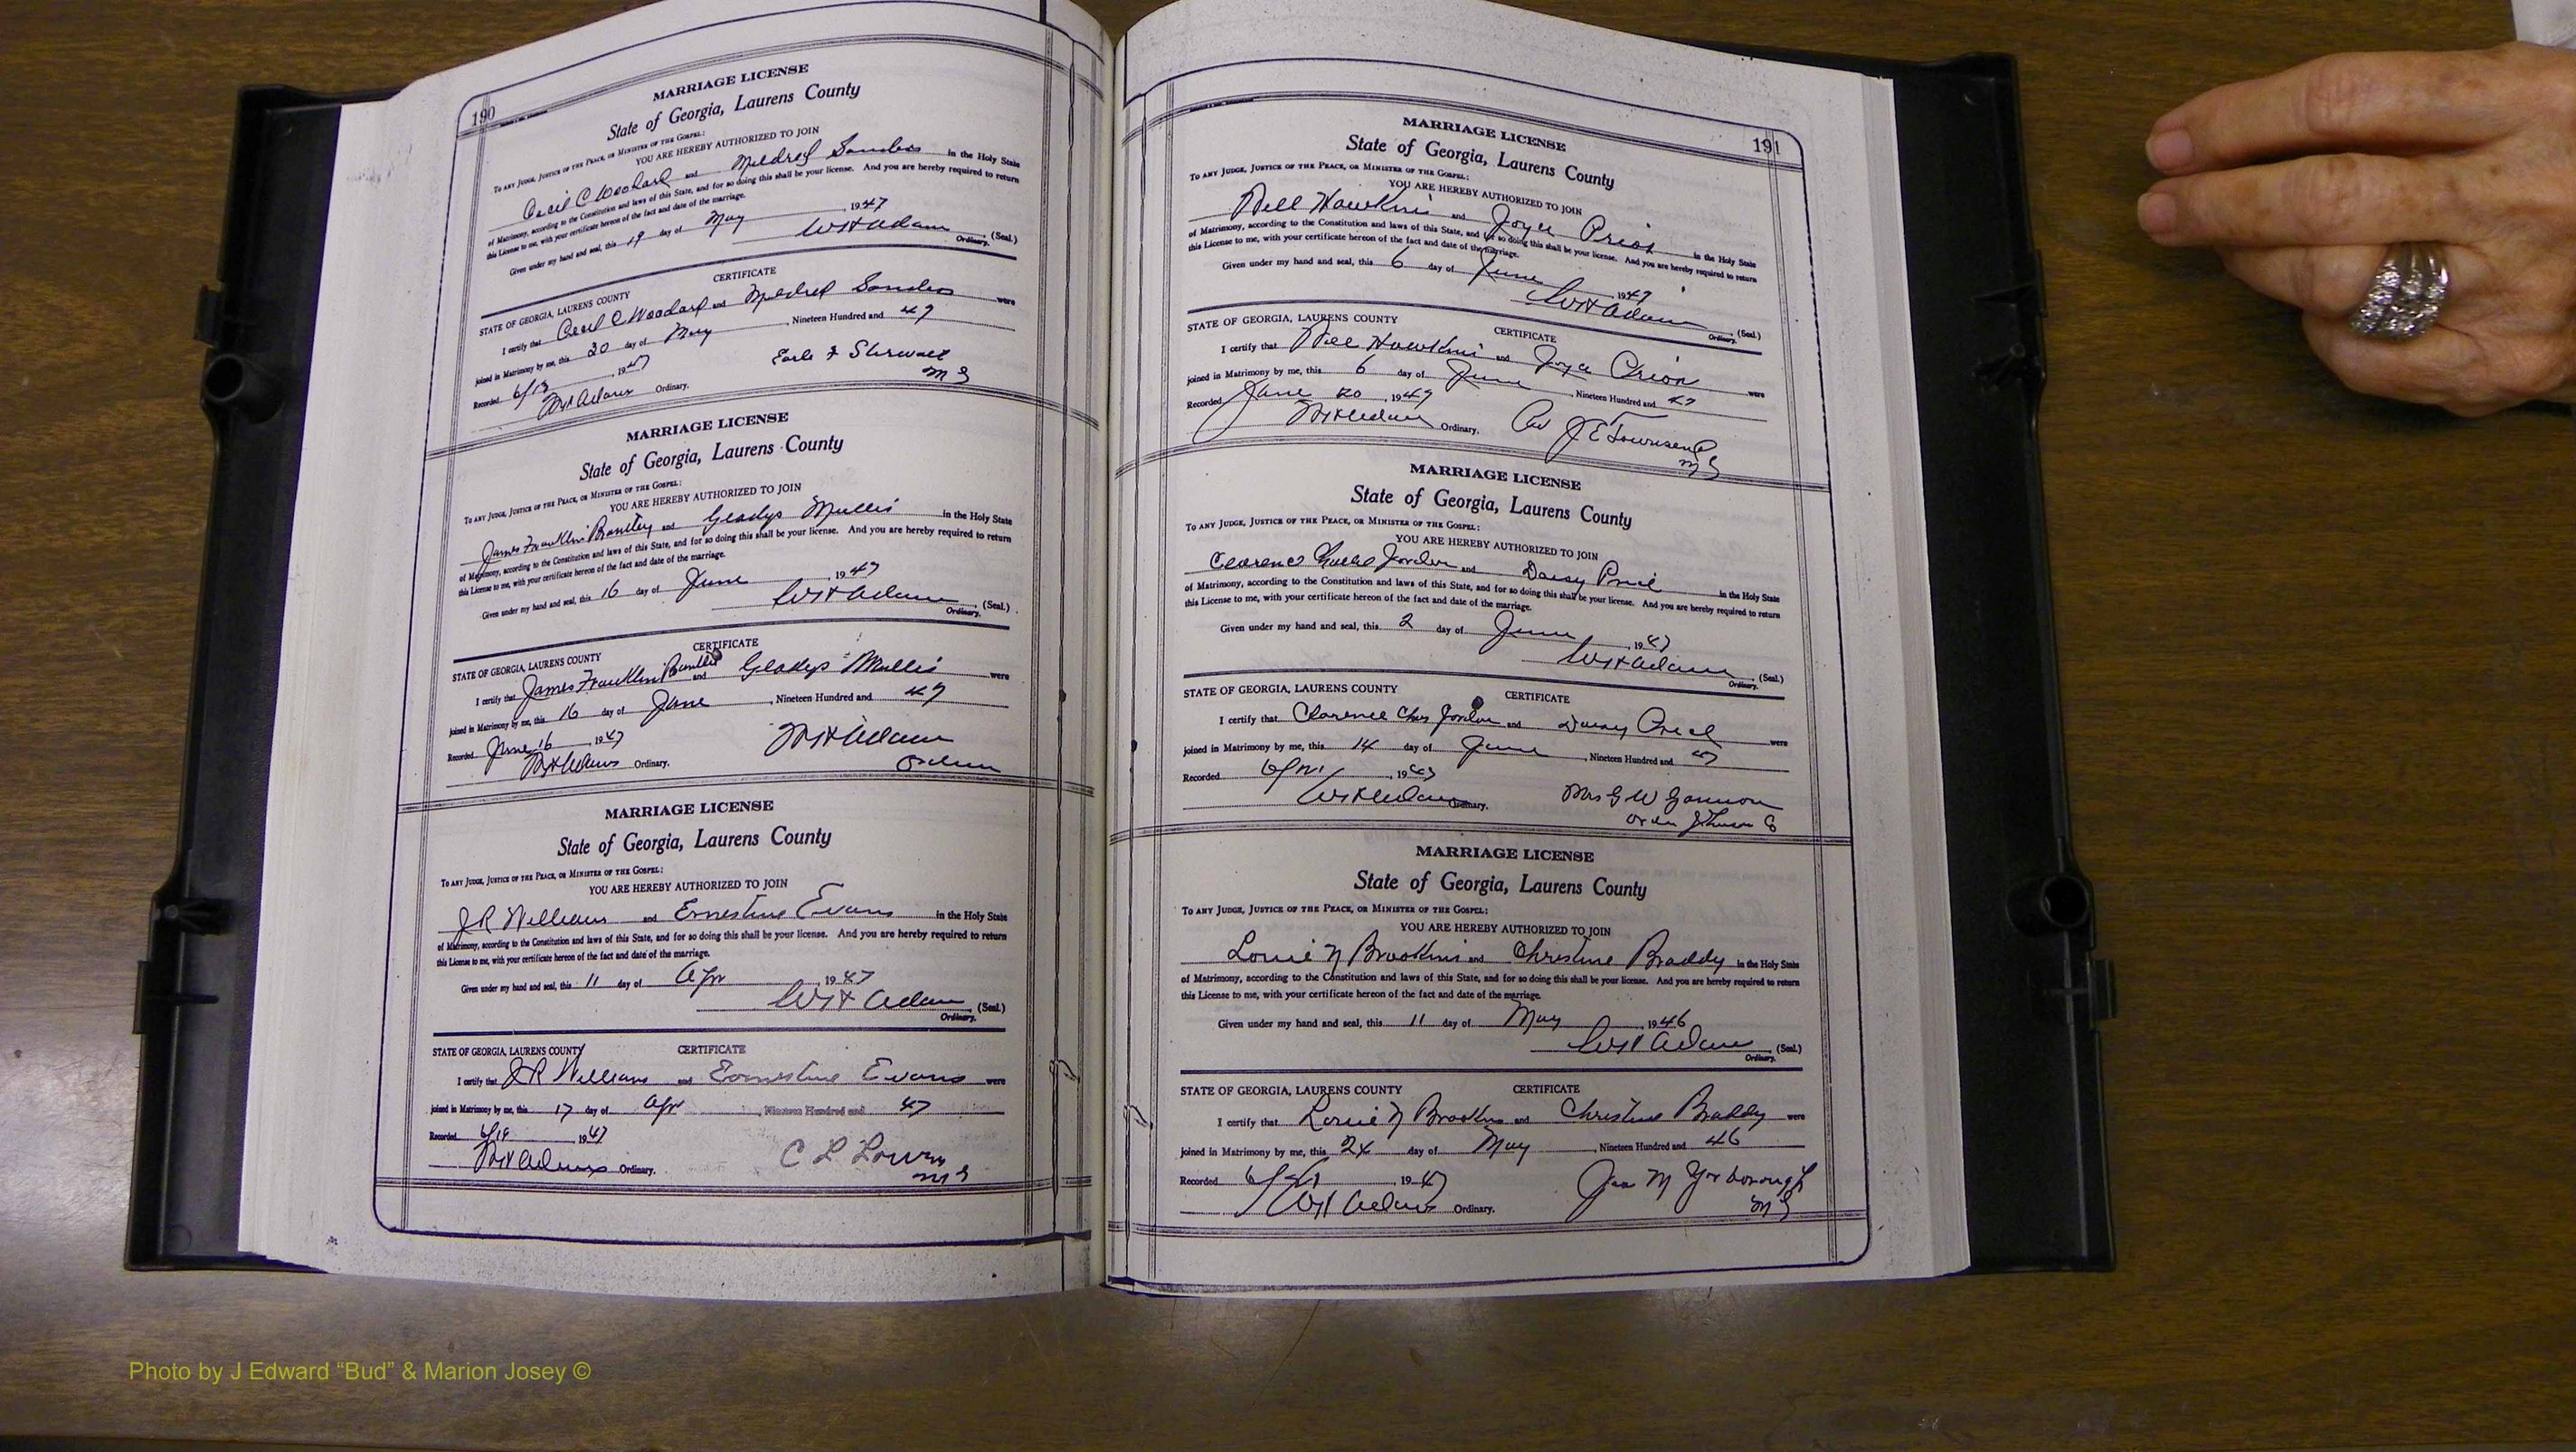 190
MARRIAGE LICENSE
State of Georgia, Laurens County
To any Judge, Justice of the Peace, or Minister of the Gospel:
YOU ARE HEREBY AUTHORIZED TO JOIN
Cecil C Woodard and Mildred Sanders in the Holy State
of Matrimony, according to the Constitution and laws of this State, and for so doing this shall be your license. And you are hereby required to return
this License to me, with your certificate hereon of the fact and date of the marriage.
Given under my hand and seal, this 19 day of May, 1947
WH Adams (Seal.)
Ordinary.
CERTIFICATE
STATE OF GEORGIA, LAURENS COUNTY
I certify that Cecil C Woodard and Mildred Sanders were
joined in Matrimony by me, this 20 day of May, Nineteen Hundred and 47
Recorded 6/13, 1947 Earle F Stirwalt
WH Adams Ordinary. M G
MARRIAGE LICENSE
State of Georgia, Laurens County
To any Judge, Justice of the Peace, or Minister of the Gospel:
YOU ARE HEREBY AUTHORIZED TO JOIN
James Franklin Brantley and Gladys Mullis in the Holy State
of Matrimony, according to the Constitution and laws of this State, and for so doing this shall be your license. And you are hereby required to return
this License to me, with your certificate hereon of the fact and date of the marriage.
Given under my hand and seal, this 16 day of June, 1947
WH Adams (Seal.)
Ordinary.
CERTIFICATE
STATE OF GEORGIA, LAURENS COUNTY
I certify that James Franklin and Gladys Mullis were
joined in Matrimony by me, this 16 day of June, Nineteen Hundred and 47
Recorded June 16, 1947 WH Adams
WH Adams Ordinary.
MARRIAGE LICENSE
State of Georgia, Laurens County
To any Judge, Justice of the Peace, or Minister of the Gospel:
YOU ARE HEREBY AUTHORIZED TO JOIN
JR Williams and Ernestine Evans in the Holy State
of Matrimony, according to the Constitution and laws of this State, and for so doing this shall be your license. And you are hereby required to return
this License to me, with your certificate hereon of the fact and date of the marriage.
Given under my hand and seal, this 11 day of Apr, 1947
WH Adams (Seal.)
Ordinary.
STATE OF GEORGIA, LAURENS COUNTY CERTIFICATE
I certify that JR Williams and Ernestine Evans were
joined in Matrimony by me, this 17 day of Apr, Nineteen Hundred and 47
Recorded 6/19, 1947 C L
WH Adams Ordinary. M G
191
MARRIAGE LICENSE
State of Georgia, Laurens County
To any Judge, Justice of the Peace, or Minister of the Gospel:
YOU ARE HEREBY AUTHORIZED TO JOIN
Hawkins and Joyce Prior in the Holy State
of Matrimony, according to the Constitution and laws of this State, and for so doing this shall be your license. And you are hereby required to return
this License to me, with your certificate hereon of the fact and date of the marriage.
Given under my hand and seal, this 6 day of June, 1947
WH Adams (Seal.)
Ordinary.
STATE OF GEORGIA, LAURENS COUNTY CERTIFICATE
I certify that Hawkins and Joyce Prior were
joined in Matrimony by me, this 6 day of June, Nineteen Hundred and 47
Recorded June 20, 1947
WH Adams Ordinary. J E Townsend
M G
MARRIAGE LICENSE
State of Georgia, Laurens County
To any Judge, Justice of the Peace, or Minister of the Gospel:
YOU ARE HEREBY AUTHORIZED TO JOIN
Clarence Jordon and Daisy in the Holy State
of Matrimony, according to the Constitution and laws of this State, and for so doing this shall be your license. And you are hereby required to return
this License to me, with your certificate hereon of the fact and date of the marriage.
Given under my hand and seal, this 2 day of June, 1947
WH Adams (Seal.)
Ordinary.
STATE OF GEORGIA, LAURENS COUNTY CERTIFICATE
I certify that Clarence Chas Jordon and Daisy were
joined in Matrimony by me, this 14 day of June, Nineteen Hundred and 47
Recorded, 1947
WH Adams Ordinary. Mrs G W
MARRIAGE LICENSE
State of Georgia, Laurens County
To any Judge, Justice of the Peace, or Minister of the Gospel:
YOU ARE HEREBY AUTHORIZED TO JOIN
Louie N Brookins and Christine Braddy in the Holy State
of Matrimony, according to the Constitution and laws of this State, and for so doing this shall be your license. And you are hereby required to return
this License to me, with your certificate hereon of the fact and date of the marriage.
Given under my hand and seal, this 11 day of May, 1946
WH Adams (Seal.)
Ordinary.
STATE OF GEORGIA, LAURENS COUNTY CERTIFICATE
I certify that Louie N Brookins and Christine Braddy were
joined in Matrimony by me, this 24 day of May, Nineteen Hundred and 46
Recorded 6/21, 1947 Jas M Yarborough
WH Adams Ordinary. M G
Photo by J Edward “Bud” & Marion Josey ©